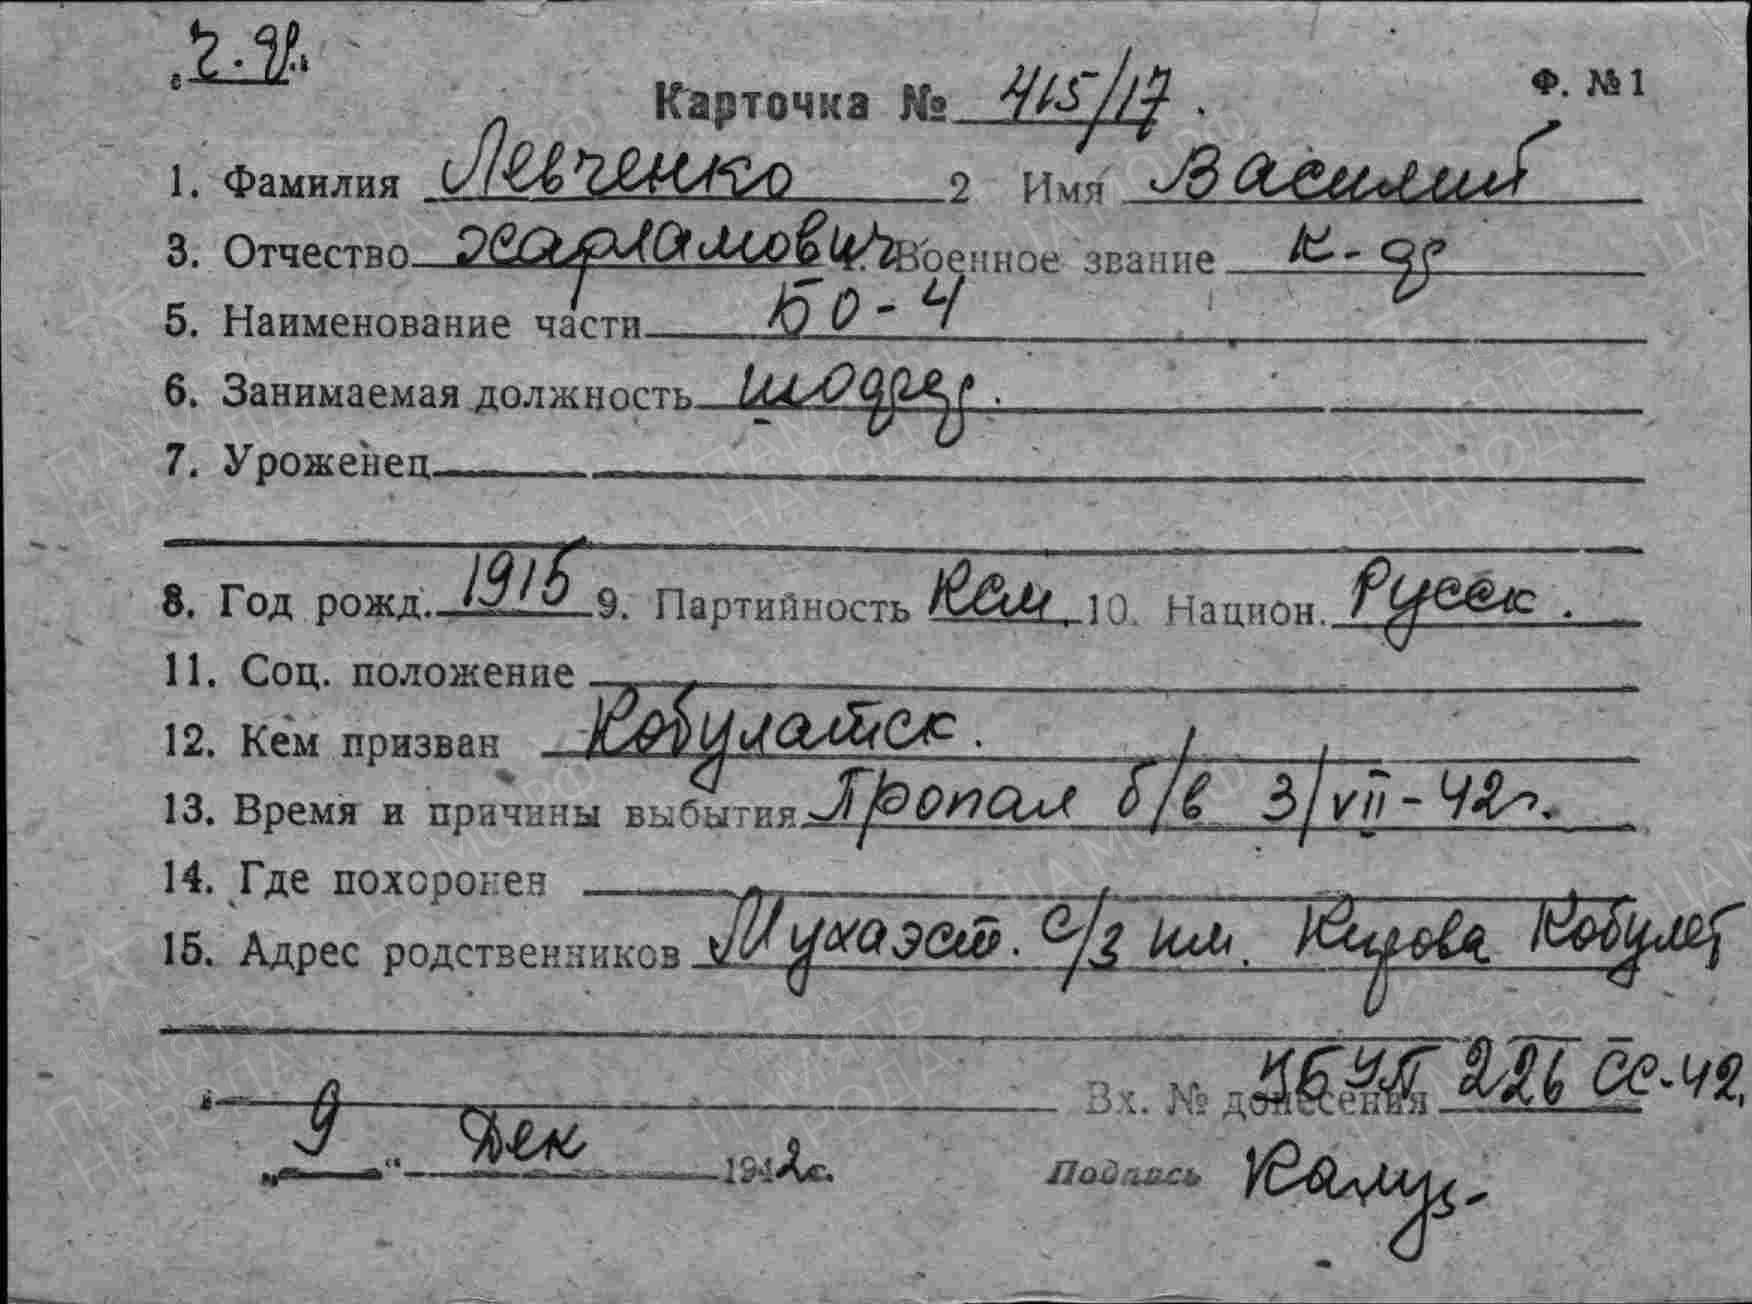 Карточка № 415/17. Ф. №1
1. Фамилия Левченко 2 Имя Василий
3. Отчество Харламович Военное звание к-ар
5. Наименование части БО-4
6. Занимаемая должность
7. Уроженец
8. Год рожд. 1915 9. Партийность Ксм. 10. Национ. Русск.
11. Соц. положение
12. Кем призван Кобулатск.
13. Время и причины выбытия Пропал б/в 3/VII-42г.
14. Где похоронен
15. Адрес родственников Мухаэст. С/з им. Кирова Кобулет
Вх. № донесения 226 СС-42.
„9“ Дек 1942г. Подпись